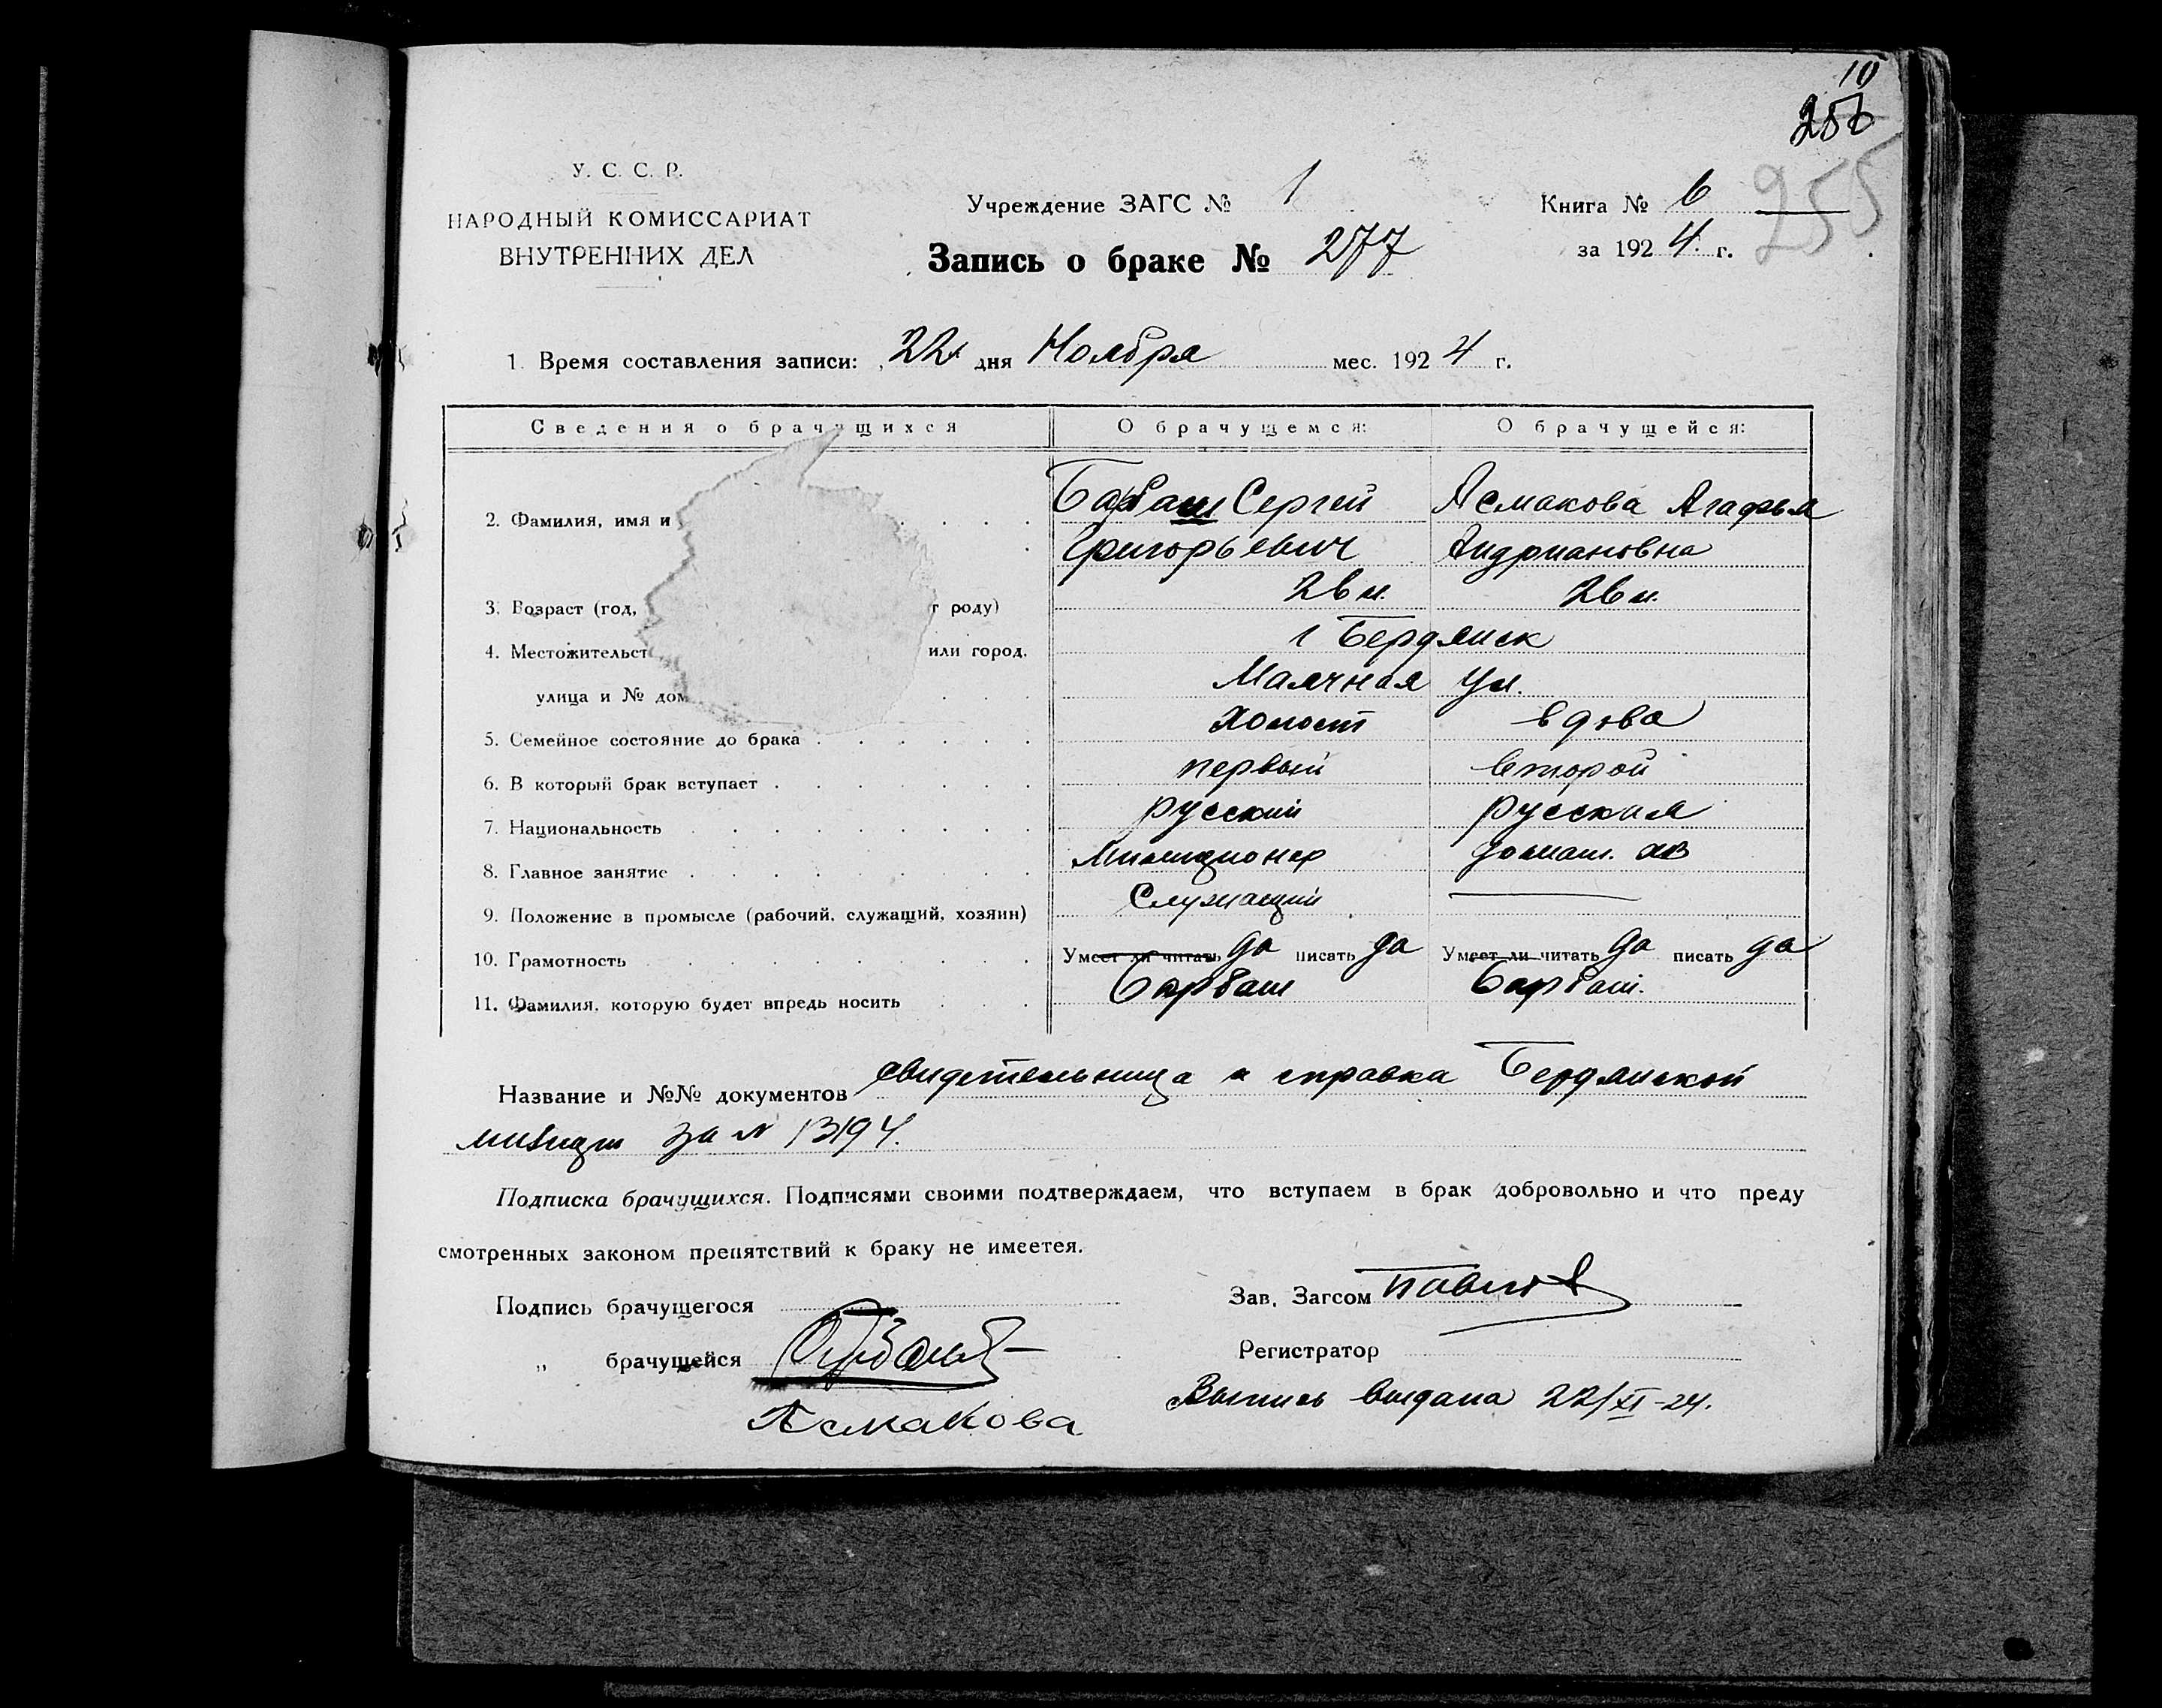 10
256
255
У. С. С. Р.
НАРОДНЫЙ КОМИССАРИАТ
ВНУТРЕННИХ ДЕЛ
Учреждение ЗАГС № 1
Запись о браке № 277
Книга № 6
за 1924 г.
1. Время составления записи: 22 дня Ноября мес. 1924 г.
Сведения о брачущихся О брачущемся: О брачущейся:
2. Фамилия, имя и Барбаш Сергей Асмакова Агафья
Григорьевич Андриановна
3. Возраст (год, т роду) 26 л. 26 л.
4. Местожительст или город, г Бердянск
улица и № дом Маячная ул.
5. Семейное состояние до брака холост вдова
6. В который брак вступает первый второй
7. Национальность русский русская
8. Главное занятие Милиционер домаш. хоз
9. Положение в промысле (рабочий, служащий, хозяин) Служащий
10. Грамотность Умеет ли читать да писать да Умеет ли читать да писать да
11. Фамилия, которую будет впредь носить Барбаш Барбаш.
Название и №№ документов справка Бердянской
милиции за N 13194.
Подписка брачущихся. Подписями своими подтверждаем, что вступаем в брак добровольно и что преду
смотренных законом препятствий к браку не имеетея.
Подпись брачущегося
„ брачущейся
Асмакова
Зав. Загсом Павлов
Регистратор
Выпись выдана 22/XI-24.